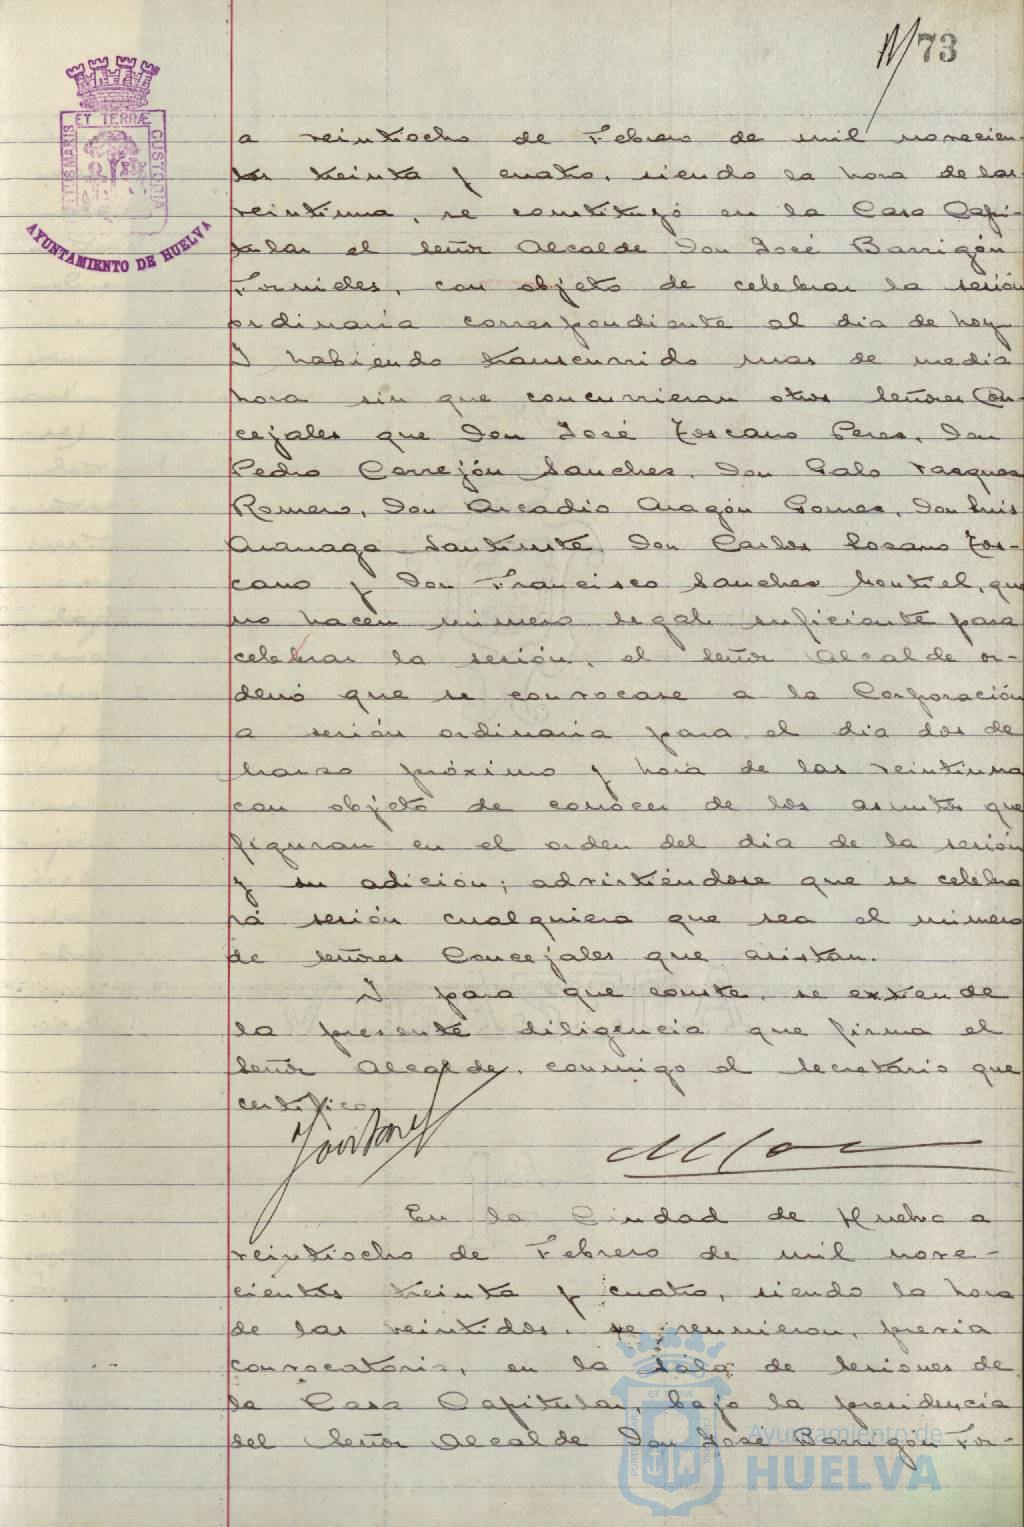 73
ET TERRÆ
PORTUS MARIS
CUSTODIA
AYUNTAMIENTO DE HUELVA
a veintiocho de Febrero de mil novecien-
tos treinta y cuatro, siendo la hora de las
veintiuna, se constituyó en la Casa Capi-
tular el Señor Alcalde Don José Barrigón
Fornieles, con objeto de celebrar la sesión
ordinaria correspondiente al dia de hoy.
Y habiendo transcurrido mas de media
hora sin que concurrieran otros Señores Con-
cejales que Don José Toscano Peres, Don
Pedro Cerrejón Sanches, Don Galo Vasques
Romero, Don Arcadio Aragón Gomes, Don Luis
Aranaga Santiuste, Don Carlos Losano Tos-
cano y Don Francisco Sanches Montiel, que
no hacen número legal suficiente para
celebrar la sesión, el Señor Alcalde or-
denó que se convocase a la Corporación
a sesión ordinaria para el dia dos de
Marso próximo y hora de las veintiuna
con objeto de conocer de los asuntos que
figuran en el orden del dia de la sesión
y su adición; advirtiéndose que se celebra
rá sesión cualquiera que sea el número
de Señores Concejales que asistan.
Y para que conste, se extiende
la presente diligencia que firma el
Señor Alcalde, conmigo el Secretario que
certifico.
En la Ciudad de Huelva a
veintiocho de Febrero de mil nove-
cientos treinta y cuatro, siendo la hora
de las veintidos, se reunieron, previa
convocatoria, en la Sala de Sesiones de
la Casa Capitular, bajo la presidencia
del Señor Alcalde Don José Barrigón For-
Ayuntamiento de
HUELVA